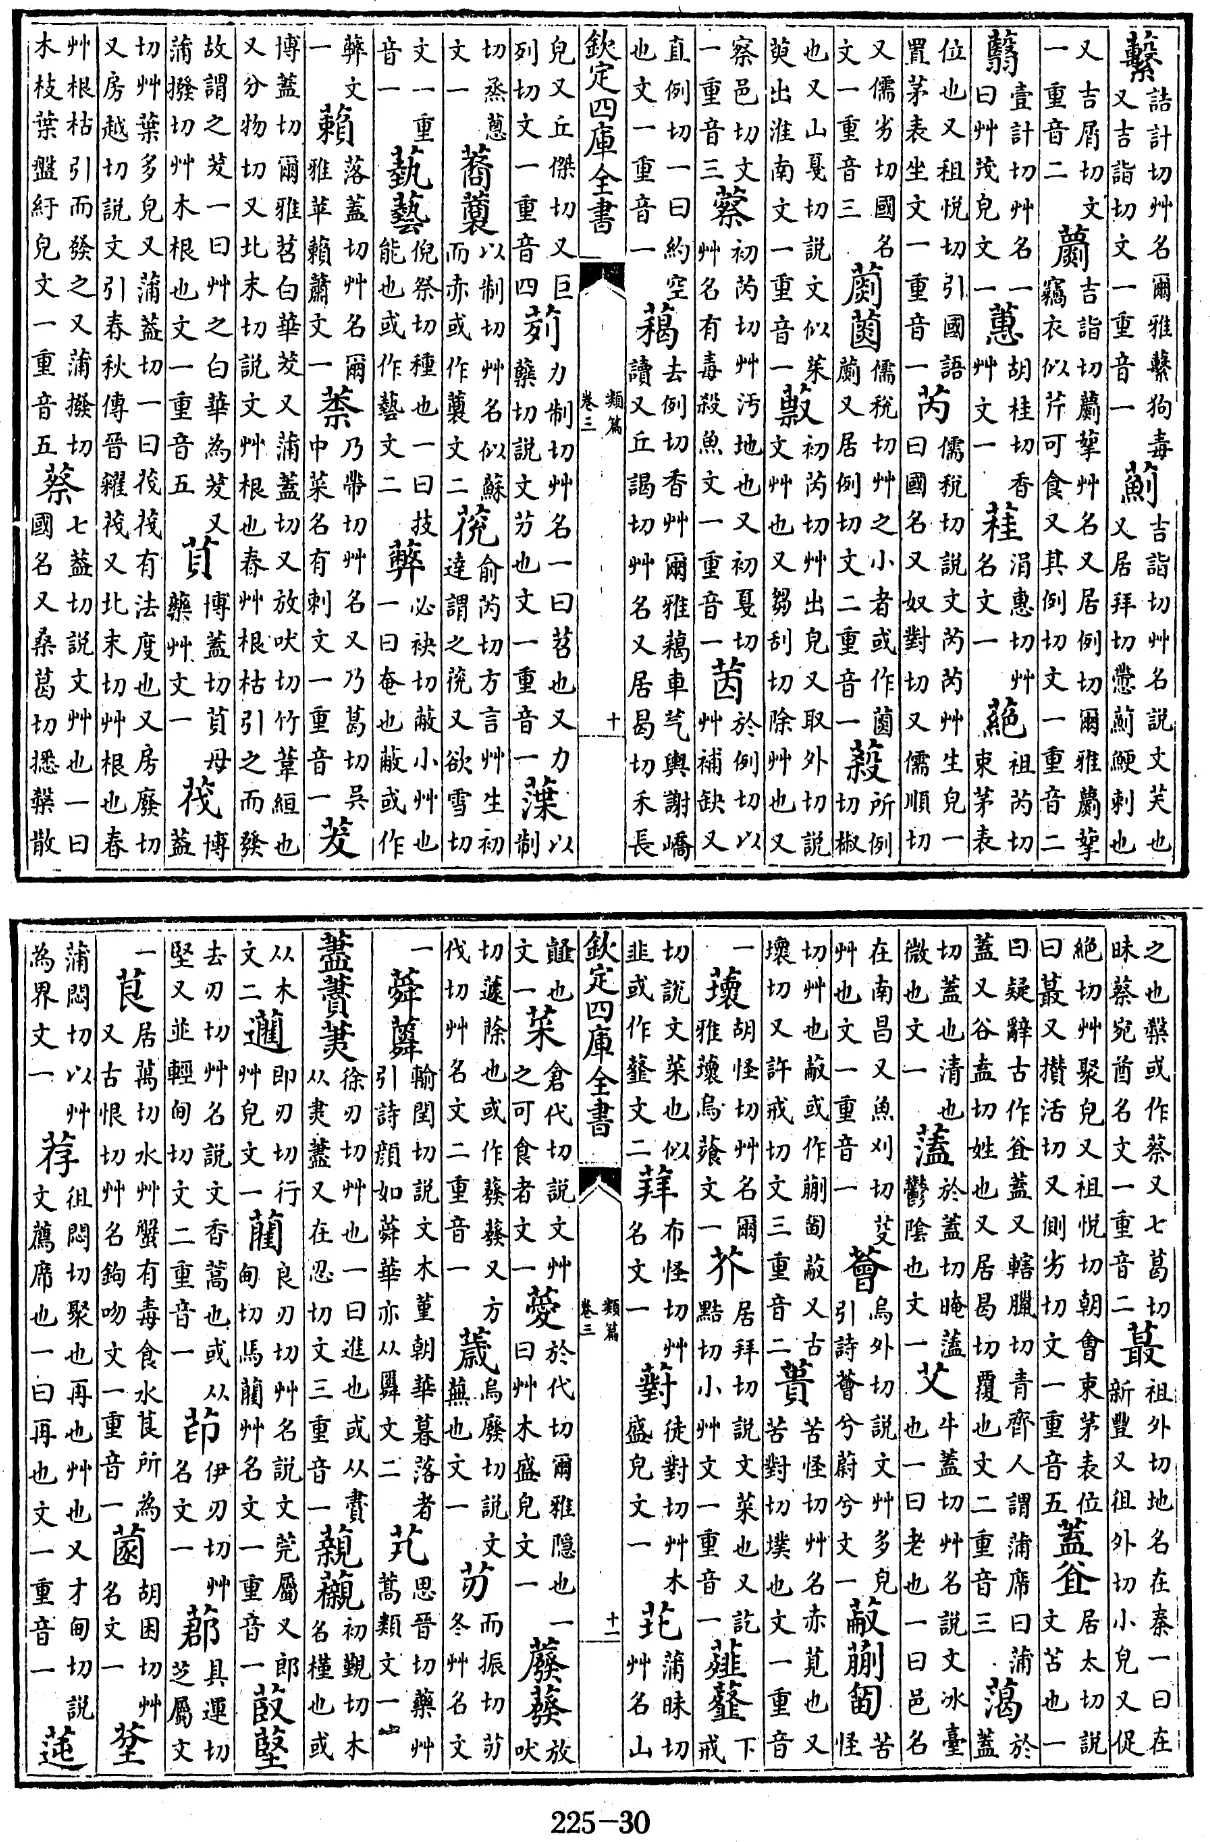 蘻詰計切艸名爾雅蘻狗毒又吉詣切文一重音一薊吉詣切艸名說文芺也又居拜切懘薊鯁刺也
又吉屑切文一重音二蘮吉詣切蘮挐艸名又居例切爾雅蘮挐竊衣似芹可食又其例切文一重音二
蘙壹計切艸名一曰艸茂皃文一蕙胡桂切香艸文一䓲涓惠切艸名文一蕝祖芮切束茅表
位也又祖悅切引國語置茅表坐文一重音一芮儒稅切說文芮芮艸生皃一曰國名又奴對切又儒順切
又儒劣切國名文一重音三儒稅切艸之小者或作又居例切文二重音一蔱所例切椒
也又山戛切說文似茱萸出淮南文一重音一初芮切艸出皃又取外切說文艸也又芻刮切除艸也又
察邑切文一重音三蔡初芮切艸汚地也又初戛切艸名有毒殺魚文一重音一䒾於例切以艸補缺又
直例切一曰約空也文一重音一藒去例切香艸爾雅藒車芞輿謝嶠讀又丘謁切艸名又居曷切禾長
欽定四庫全書 類篇 卷三 十
皃又丘傑切又巨列切文一重音四茢力制切艸名一曰苕也又力蘖切說文芀也文一重音一以制
切烝蔥文一以制切艸名似蘇而赤或作文二莌俞芮切方言艸生初達謂之莌又欲雪切
文一重音一蓺藝倪祭切種也一曰技能也或作藝文二䔑必袂切蔽小艸也一曰奄也蔽或作
䔑文一藾落蓋切艸名爾雅苹藾蕭文一乃帶切艸名又乃葛切吳中菜名有刺文一重音一茇
博蓋切爾雅苕白華茇又蒲蓋切又放吠切竹葦絙也又分物切又北末切說文艸根也春艸根枯引之而發
故謂之茇一曰艸之白華為茇又蒲撥切艸木根也文一重音五茛博蓋切茛母藥艸文一茷博蓋
切艸葉多皃又蒲蓋切一曰茷茷有法度也又房廢切又房越切說文引春秋傳晉糴茷又北末切艸根也春
艸根枯引而發之又蒲撥切木枝葉盤紆皃文一重音五蔡七蓋切說文艸也一曰國名又桑葛切𢟪糳散
之也糳或作蔡又七葛切昧蔡宛酋名文一重音二蕞祖外切地名在秦一曰在新豐又徂外切小皃又促
絕切艸聚皃又祖悅切朝會束茅表位曰蕞又攢活切又側劣切文一重音五蓋居太切說文苫也一
曰疑辭古作蓋又轄臘切青齊人謂蒲席曰蒲蓋又谷盍切姓也又居曷切覆也文二重音三濭於蓋
切蓋也清也微也文一薀於蓋切晻薀鬱陰也文一艾牛蓋切艸名說文冰臺也一曰老也一曰邑名
在南昌又魚刈切芟艸也文一重音一薈烏外切說文艸多皃引詩薈兮蔚兮文一蔽蒯苦怪
切艸也蔽或作蒯蔽又古壞切又許戒切文三重音二蕢苦怪切艸名赤莧也又苦對切墣也文一重音
一蘹胡怪切艸名爾雅蘹烏蕵文一芥居拜切說文菜也又訖黠切小艸文一重音一薤䪥下戒
切說文菜也似韭或作䪥文二䔅布怪切艸名文一薱徒對切艸木盛皃文一蒲昧切艸名山
欽定四庫全書 類篇 卷三 十一
韰也文一菜倉代切說文艸之可食者文一薆於代切爾雅隱也一曰艸木盛皃文一蕟放吠
切蘧蒢也或作又方伐切艸名文二重音一薉烏廢切說文蕪也文一芿而振切芿冬艸名文
一蕣輸閏切說文木堇朝華暮落者引詩顏如蕣華亦从文二芁思晉切藥艸蒿類文一
藎徐刃切艸也一曰進也或从从又在忍切文三重音一藽初覲切木名槿也或
从木文二即刃切行艸皃文一藺良刃切艸名說文莞屬又郎甸切馬藺艸名文一重音一菣
去刃切艸名說文香蒿也或从堅又並輕甸切文二重音一茚伊刃切艸名文一具運切芝屬文
一茛居萬切水艸蟹有毒食水茛所為又古恨切艸名鉤吻文一重音一胡困切艸名文一
蒲悶切以艸為界文一荐徂悶切聚也再也艸也又才甸切說文薦席也一曰再也文一重音一
225-30